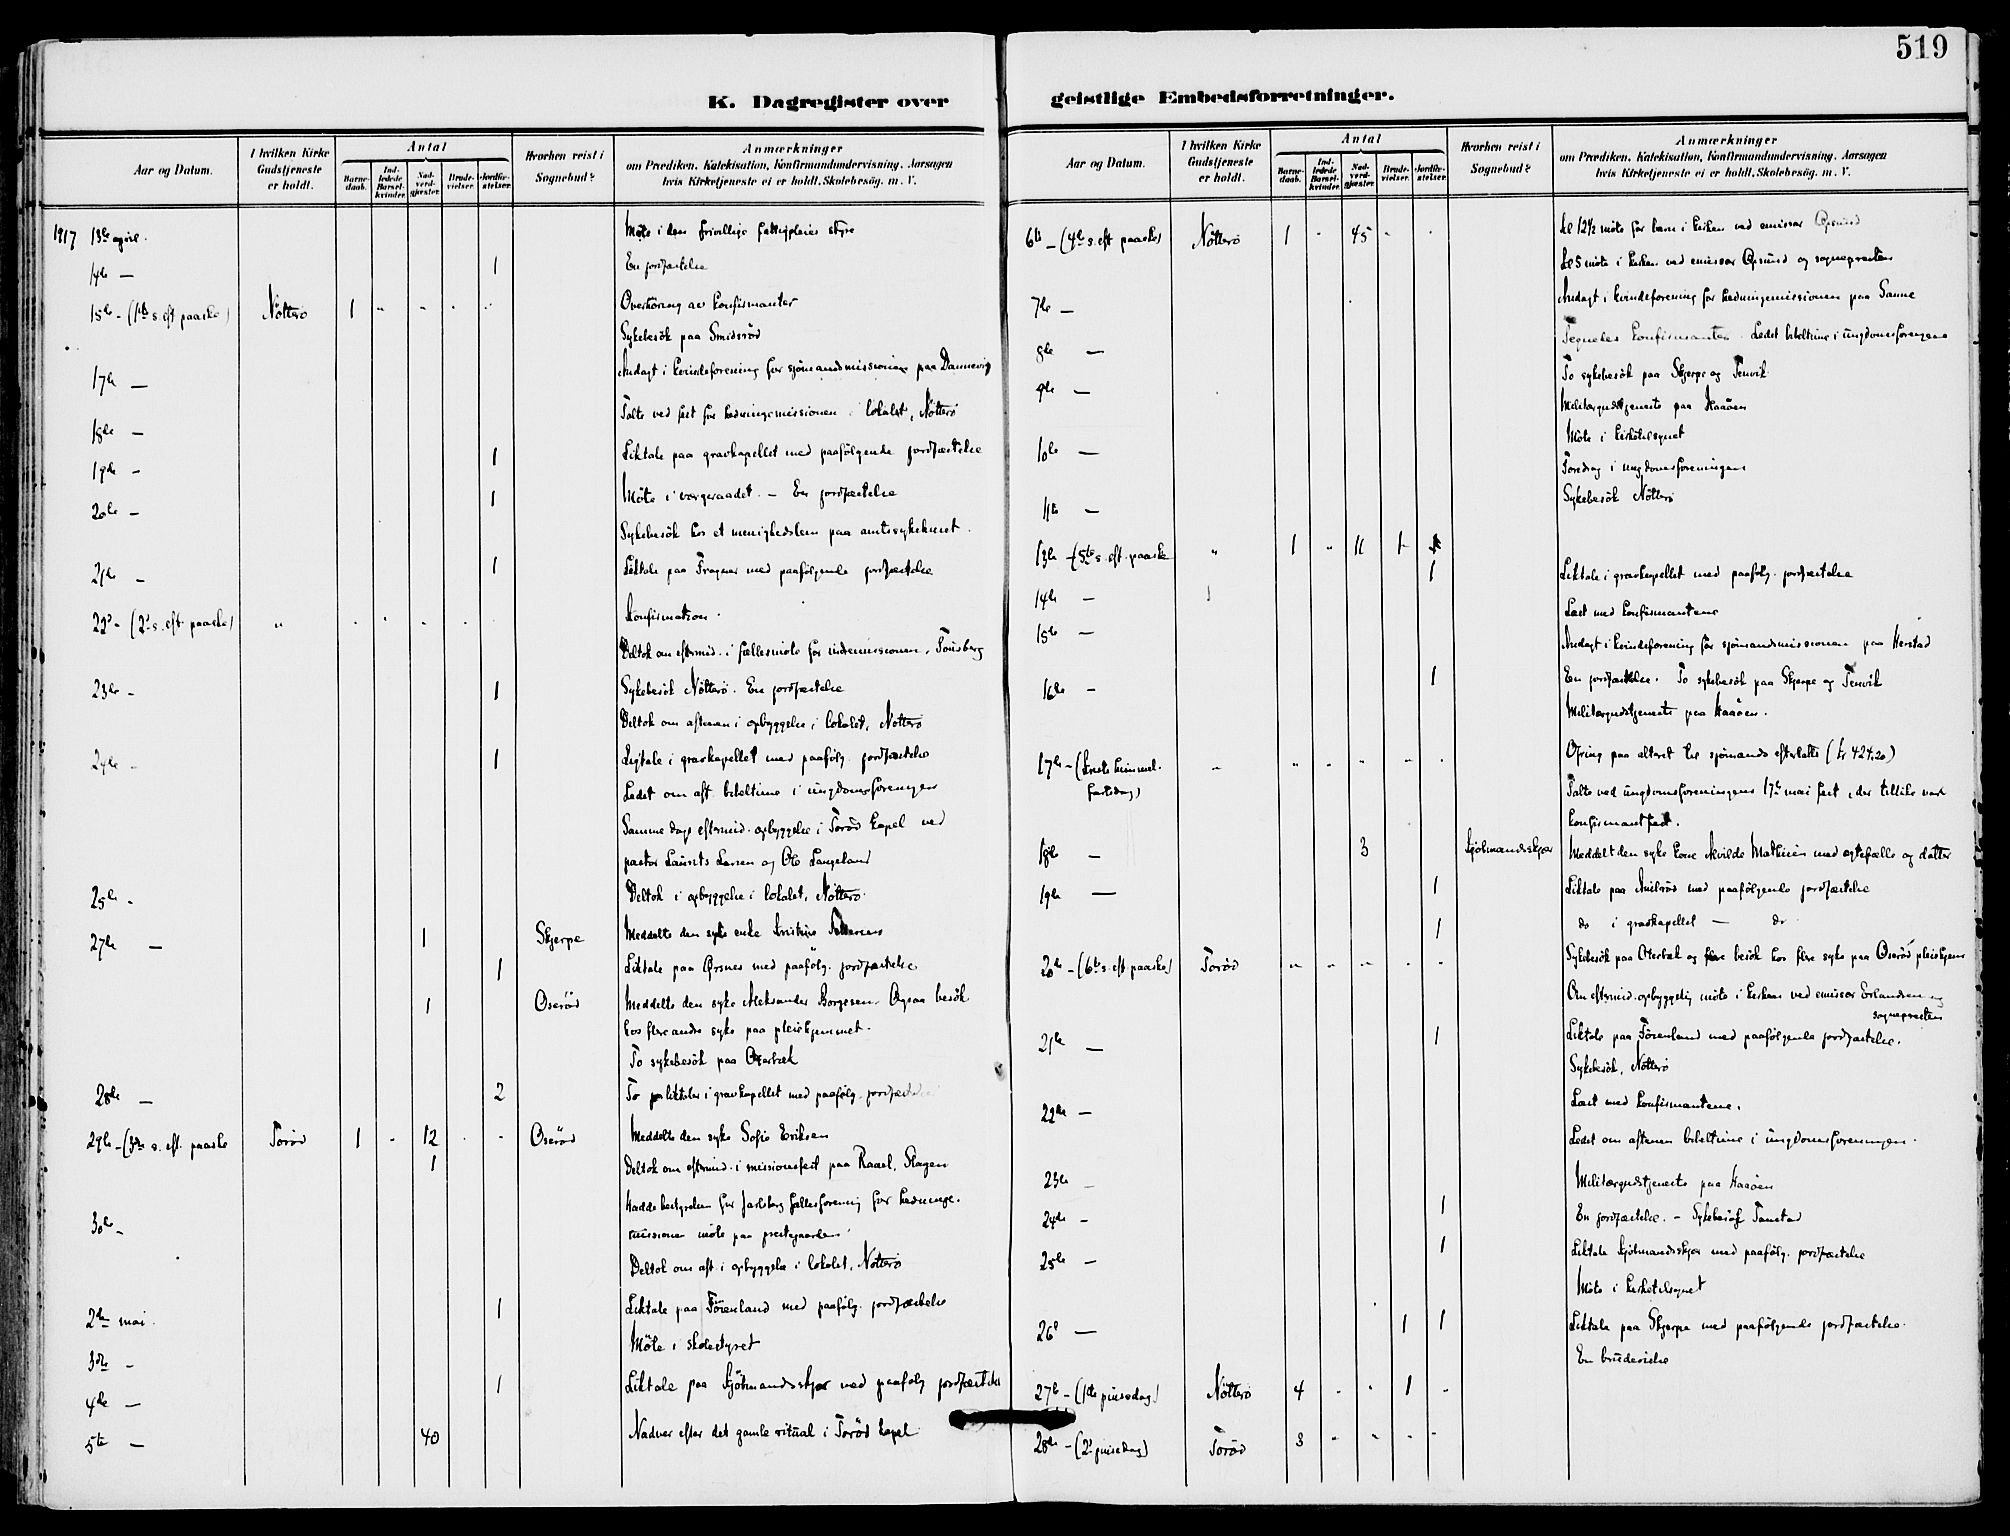 519
K. Dagregister over geistlige Embedsforretninger.
Aar og Datum.
I hvilken Kirke Gudstjeneste er holdt.
Antal
Barne-daab.
Ind-ledede Barsel-kvinder.
Nad-verd-gjæster.
Brude-vielser.
Jordfæ-stelser.
Hvorhen reist i Sognebud?
Anmærkninger
om Prædiken, Katekisation, Konfirmandundervisning, Aarsagen
hvis Kirketjeneste ei er holdt, Skolebesøg, m. V.
1917 13de april. Møte i den frivillige fattigpleies styre
14de — 1 En jordfæstelse
15de - (1ste s. eft. paaske) Nøtterø 1 - - - - Overhøring av konfirmanter
Sykebesøk paa Smidsrød
17de — Andagt i kvindeforening for sjømandsmissionen paa Dannevig
18de — Talte ved fest for hedningemissionen i lokalet, Nøtterø
19de - 1 Liktale paa gravkapellet med paafølgende jordfæstelse
20de - 1 Møte i vergeraadet. - En jordfæstelse
Sykebesøk hos et menighedslem paa amtssykehuset.
21de - 1 Liktale paa Fragner med paafølgende jordfæstelse
22d - (2d s. eft. paaske) " - - - - - Konfirmation.
Deltok om eftermid. i fællesmøte for indremissionen, Tønsberg
23de - 1 Sykebesøk Nøtterø. En jordfæstelse
Deltok om aftenen i opbyggelse i lokalet, Nøtterø
24de - 1 Ligtale i gravkapellet med paafølg. jordfæstelse
Ledet om aft. bibeltime i ungdomsforeningen
Samme dags eftermid. opbyggelse i Torød kapel ved
pastor Laurits Larsen og Ole Langeland
25de - Deltok i opbyggelse i lokalet, Nøtterø
27de — 1 Skjerpe Meddelte den syke enke Kristine
1 Liktale paa Ørsnes med paafølg. jordfæstelse
1 Oserød Meddelte den syke Aleksander Borgesen. Ogsaa besøk
hos flere andre syke paa pleiehjemmet.
To sykebesøk paa Oterbæk
28de — 2 To liktaler i gravkapellet med paafølg. jordfæstelse
29de - (3dje s. eft. paaske Torød 1 - 12 - - Oserød Meddelte den syke Sofie Eriksen
1 Deltok om eftermid. i missionsfest paa Raael, Skagen
30te - Hadde bestyrelsen for Jarlsberg fællesforening for hedninge-
missionen møte paa prestegaarden
Deltok om aft. i opbyggelse i lokalet, Nøtterø
2den mai. 1 Liktale paa Førenland med paafølg. jordfæstelse
3dje - Møte i skolestyret
4de — 1 Liktale paa Kjøbmandsskjær med paafølg jordfæstelse
5te — 40 Nadver efter det gamle ritual i Torød kapel
6te - (4de s. eft paaske) Nøtterø 1 - 45 - - kl 12½ møte for barn i kirken ved emissær Opsund
kl 5 møte i kirken ved emissær Opsund og sognepresten
7de — Andagt i kvindeforening for hedningemissionen paa Sanne
8de — Tegnedes konfirmanter. Ledet bibeltime i ungdomsforeningen
9de — To sykebesøk paa Skjerpe og Tenvik
Militærgudstjeneste paa Haaøen
10de — Møte i kirketilsynet
Foredrag i ungdomsforeningen
11te — Sykebesøk Nøtterø
13de - (5te s. eft. paaske " 1 - 11 1
1 Liktale i gravkapellet med paafølg. jordfæstelse
14de — Læst med konfirmantene
15de — Andagt i kvindeforening for sjømandsmissionen paa Herstad
16de - 1 En jordfæstelse. To sykebesøk paa Skjerpe og Tenvik
Militærgudstjeneste paa Haaøen.
17de - (Kristi himmel-fartsdag) " - - - - - Ofring paa alteret til sjømænds efterlatte (kr 424.20)
Talte ved ungdomsforeningens 17de mai fest, der tillike var
konfirmantfest.
18de — 3 Kjøbmandsskjær Meddelt den syke kone Alvilde Mathisen med egtefælle og datter
19de — 1 Liktale paa med paafølgende jordfæstelse
1 do i gravkapellet — do
20de - (6te s. eft. paaske) Torød - - - - - Sykebesøk paa Oterbæk og besøk hos flere syke paa Oserød pleiehjem
Om eftermid. opbyggelig møte i kirken ved emissær Erlandsen og
sognepresten
21de — 1 Liktale paa Førenland med paafølgende jordfæstelse.
Sykebesøk, Nøtterø
22de — Læst med konfirmantene.
Ledet om aftenen bibeltime i ungdomsforeningen.
23de — Militærgudstjeneste paa Haaøen
24de - 1 En jordfæstelse. - Sykebesøk Tanstad
25de — 1 Liktale Kjøbmandsskjær med paafølg. jordfæstelse
Møte i kirketilsynet
26d — 1 1 Liktale paa Skjerpe med paafølgende jordfæstelse.
En brudevielse
27de - (1ste pinsedag) Nøtterø 4 - - 1 -
28de - (2d pinsedag) Torød 3 - - - -